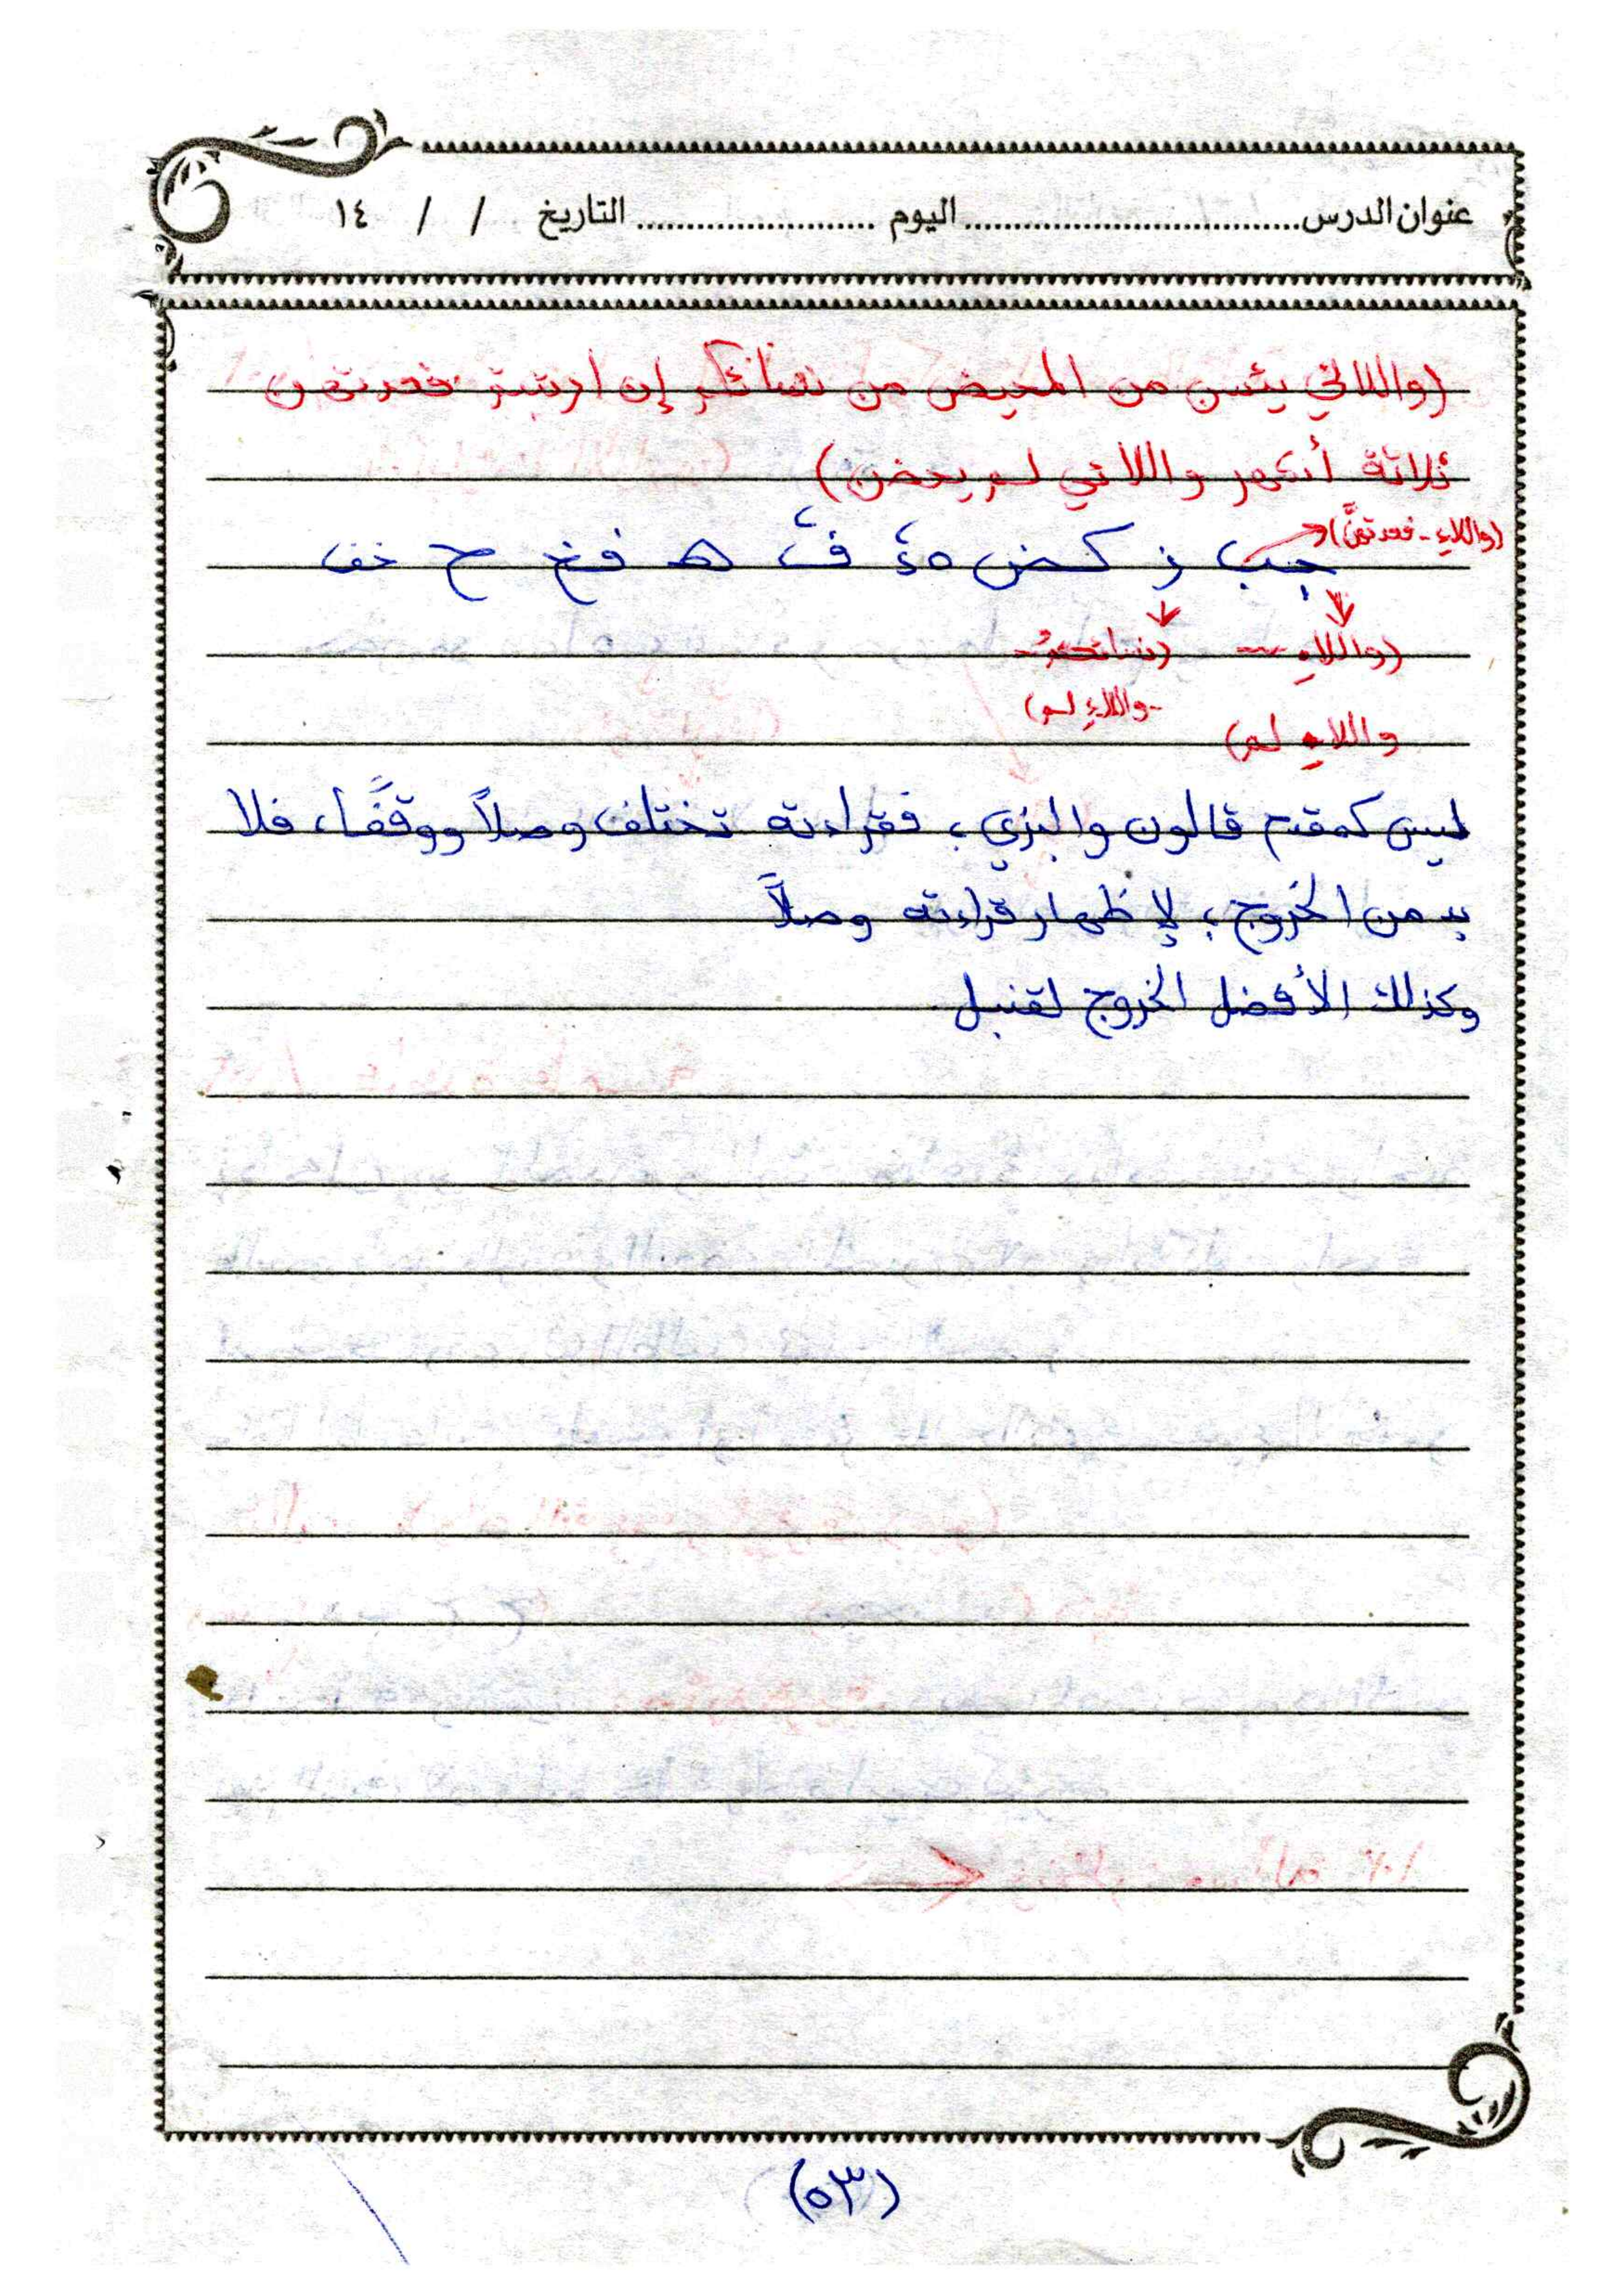 عنوان الدرس.................................. اليوم ........................ التاريخ / / ١٤
(واللائي يئسن من المحيض من نسائكم إن ارتبتم فعدتهن
ثلاثة أشهر واللائي لم يحضن)
(واللاءِ - فعدتهنَّ)
ز كـض فـخ ح خف
(واللاءِ (نسائكمُ -
- واللاءِ لم)
واللاءِ لم)
ليس كمقتح قالون والبزي، فقراءته تختلف وصلاً ووقفًا، فلا
بد من الخروج؛ لإظهار قراءته وصلاً
وكذلك الأفضل الخروج لقنبل
(٥٣)